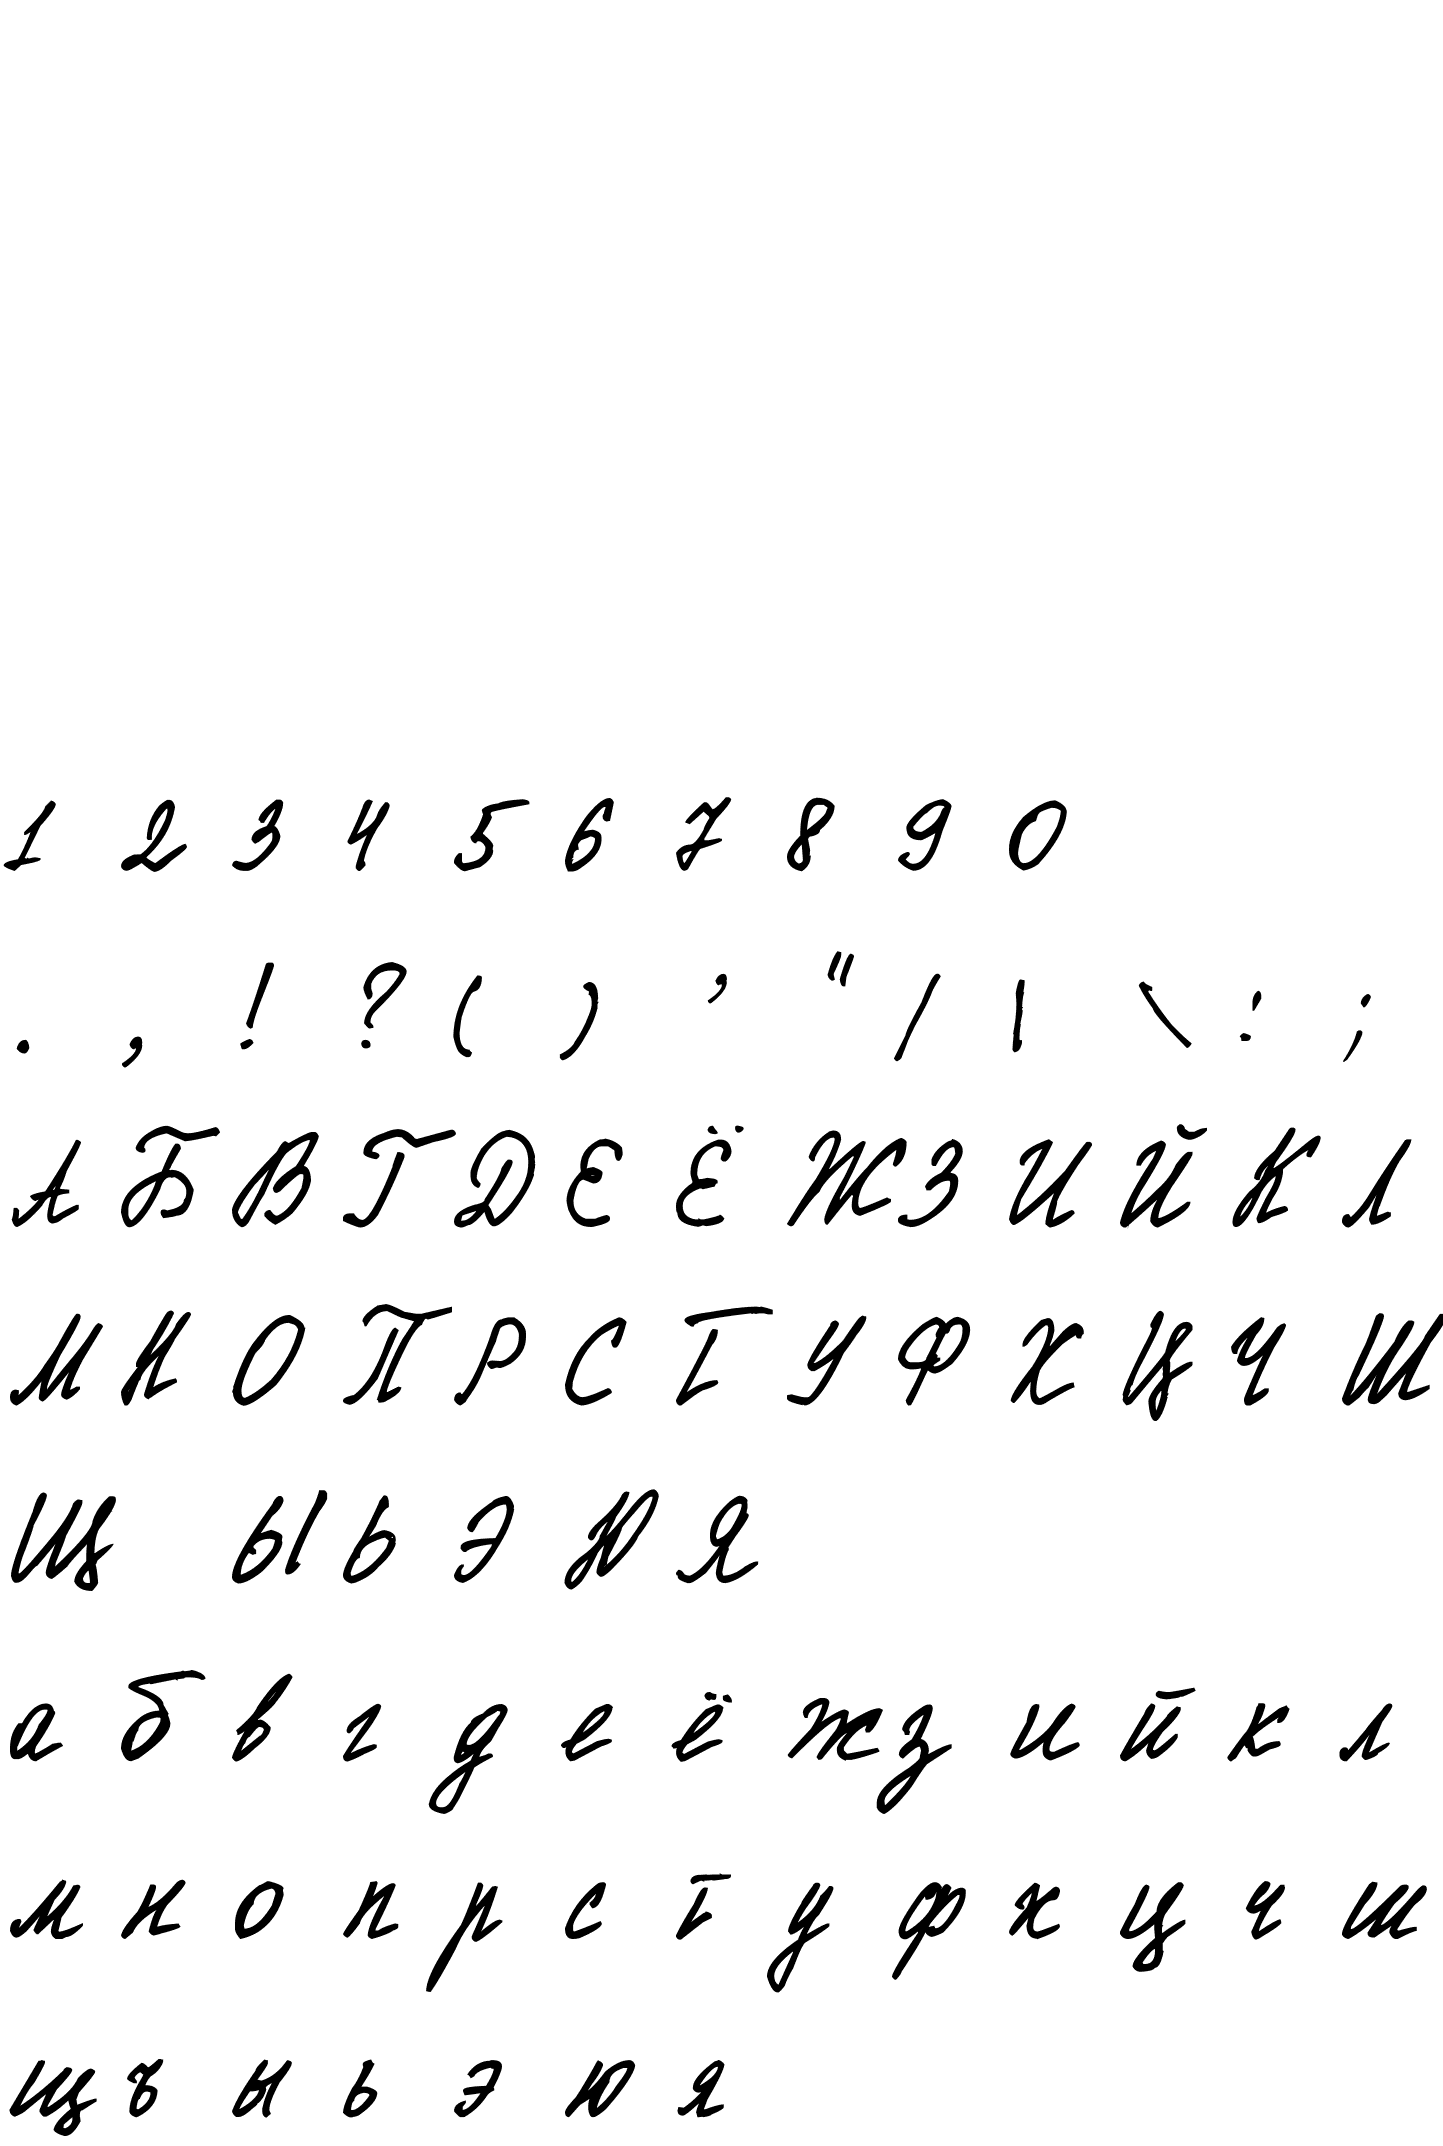 1 2 3 4 5 6 7 8 9 0
. , ! ? ( ) ’ " / | \ : ;
А Б В Г Д Е Ё Ж З И Й К Л
М Н О П Р С Т У Ф Х Ц Ч Ш
Щ Ы Ь Э Ю Я
а б в г д е ё ж з и й к л
м н о п р с т у ф х ц ч ш
щ ъ ы ь э ю я